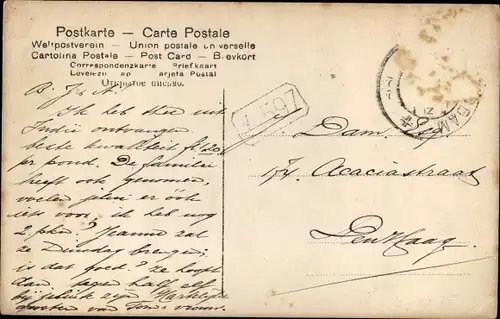 Postkarte — Carte Postale
Weltpostverein — Union postale universelle
Cartolina Postale — Post Card — Brevkort
Correspondenzkarte Briefkaart
Levelező lap Tarjeta Postal
Открытое письмо.
B. J & A.
Ik heb thee uit
Indie ontvangen
beste kwaliteit f 1.20
per pond. De familie
heeft ook genomen,
voelen jelui er óók
iets voor, ik heb nog
2 pden? Jeanne zal
ze Dinsdag brengen;
is dat goed? ze hoopt
dan tegen half elf
bij jelui te zijn Hartelijke
groeten van
Dam
Acaciastraat
Den Haag